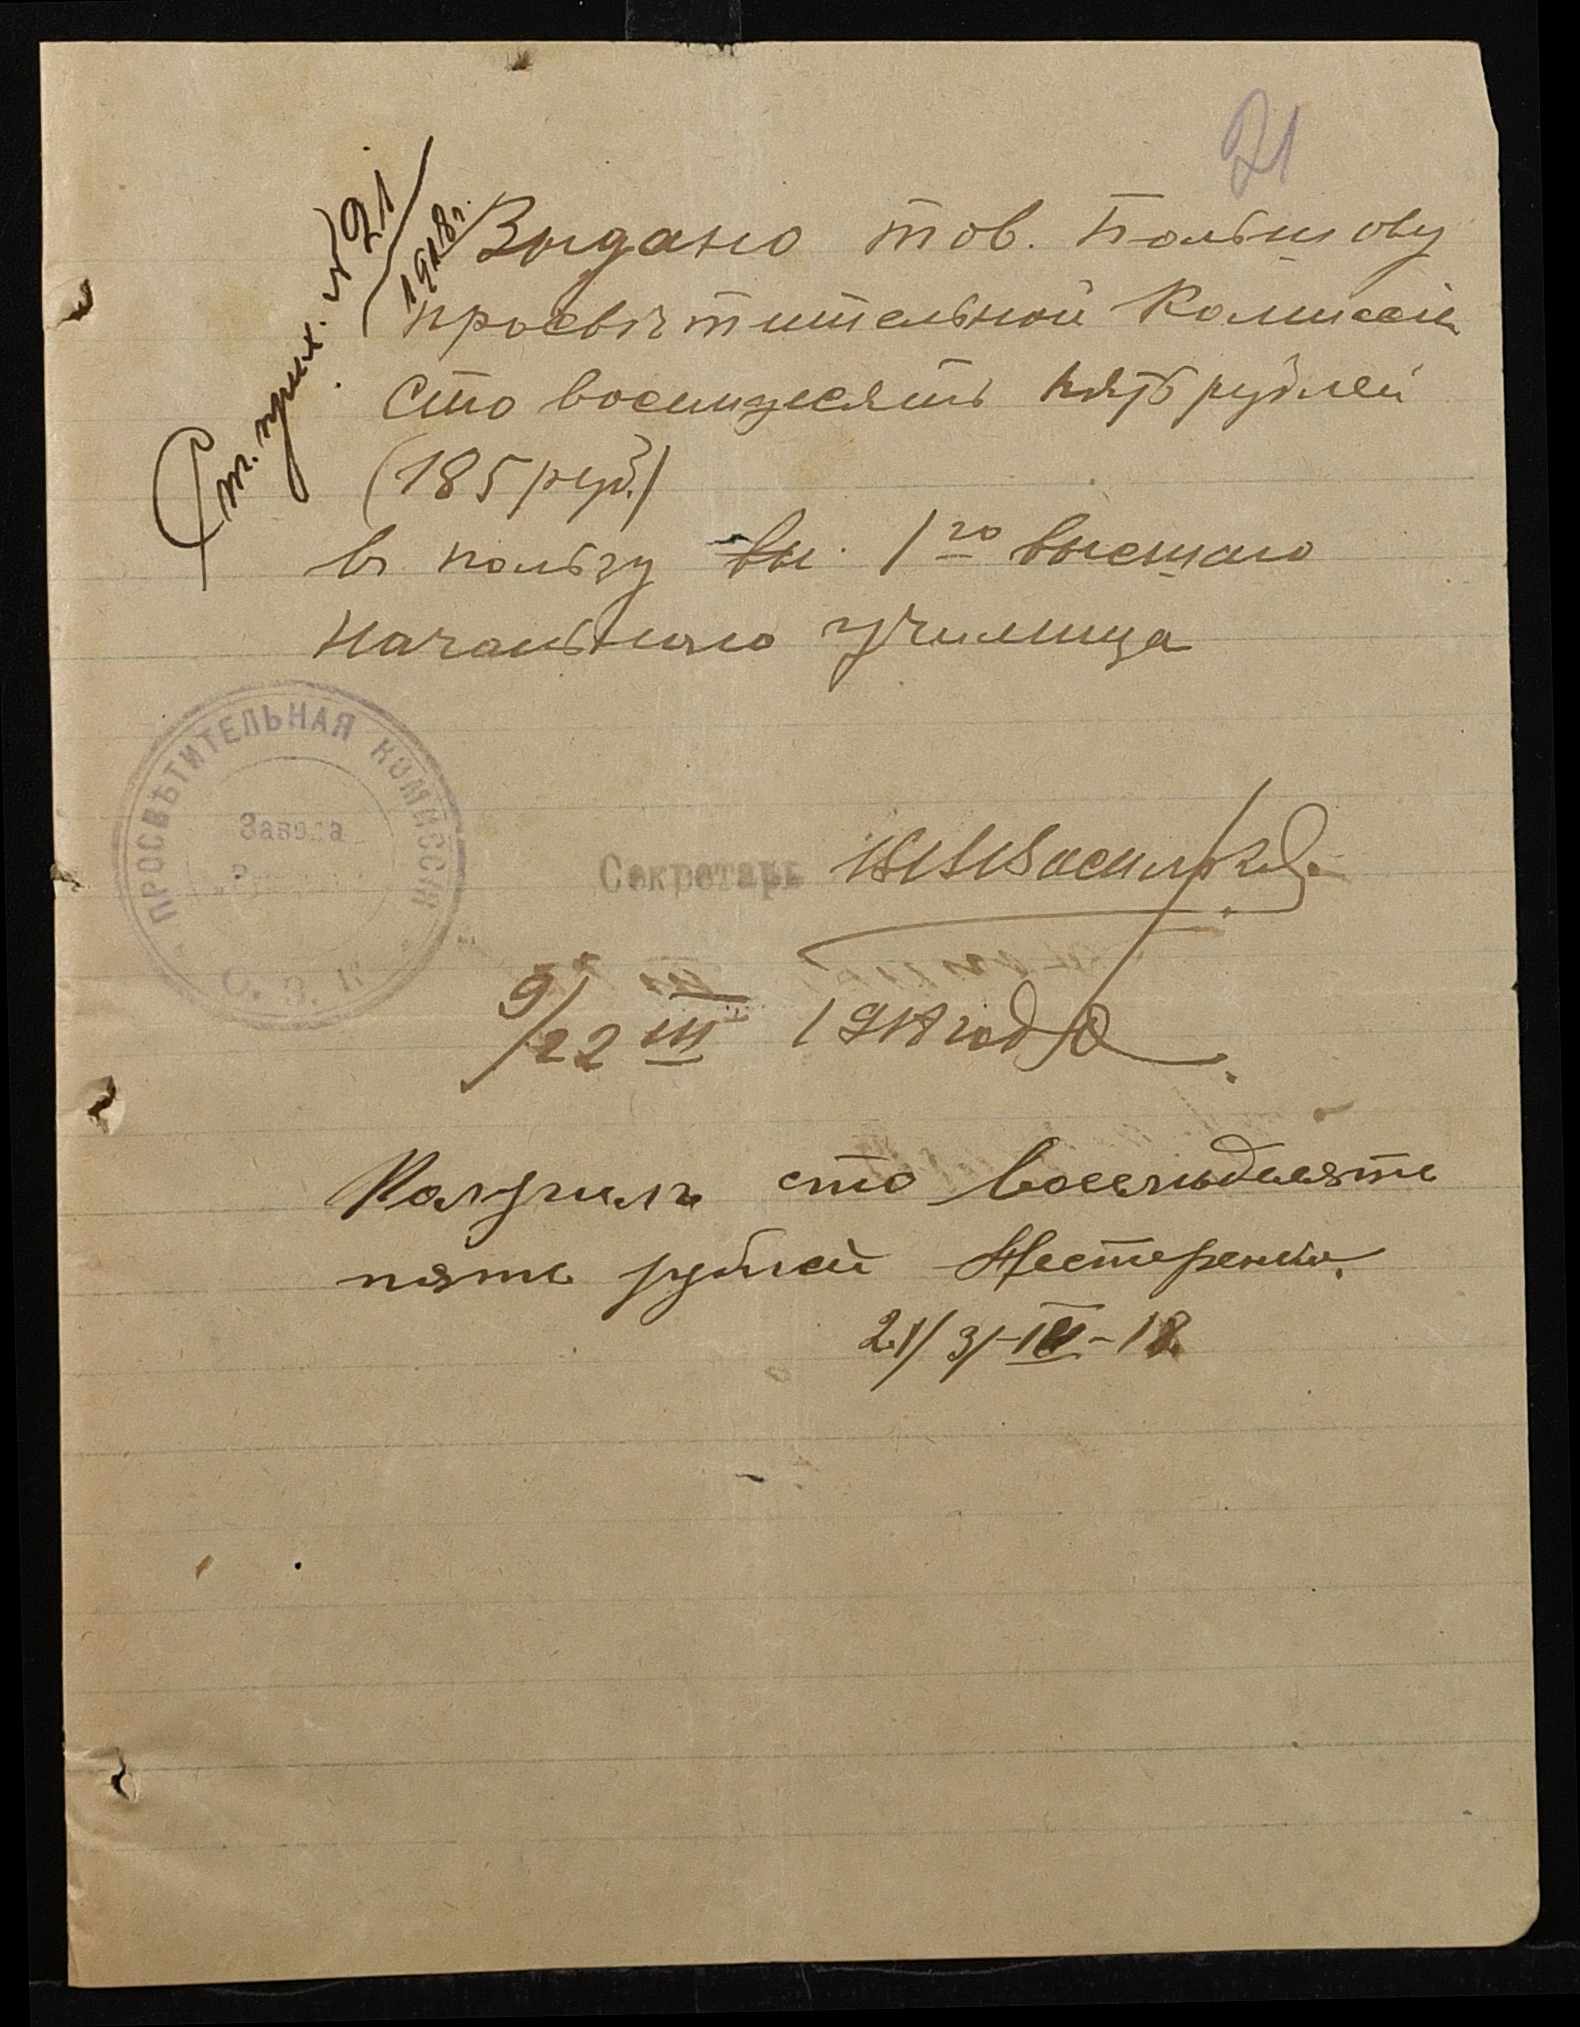 21
Ст. прих. № 21
1918 г.
Выдано тов. Польшову
просвѣтительной Комиссіи
сто восемдесятъ пять рублей
(185 руб.)
въ пользу вы. 1го высшаго
начальнаго училища
ПРОСВѢТИТЕЛЬНАЯ КОМИССІЯ
Завода
С. Э. К.
Секретарь
9/22 III 1918 года
Получилъ сто восемьдесять
пять рублей Нестеренко.
21/3/-III-18